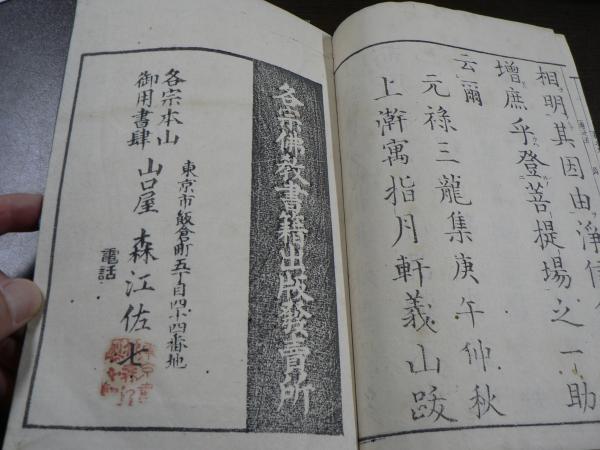 相明其因由淨信
增庶乎登菩提場之一助
云爾
元祿三龍集庚午仲秋
上澣寓指月軒義山跋
各宗佛教書籍出版發賣所
東京市飯倉町五丁目四十四番地
各宗本山
御用書肆
山口屋 森江佐七
電話